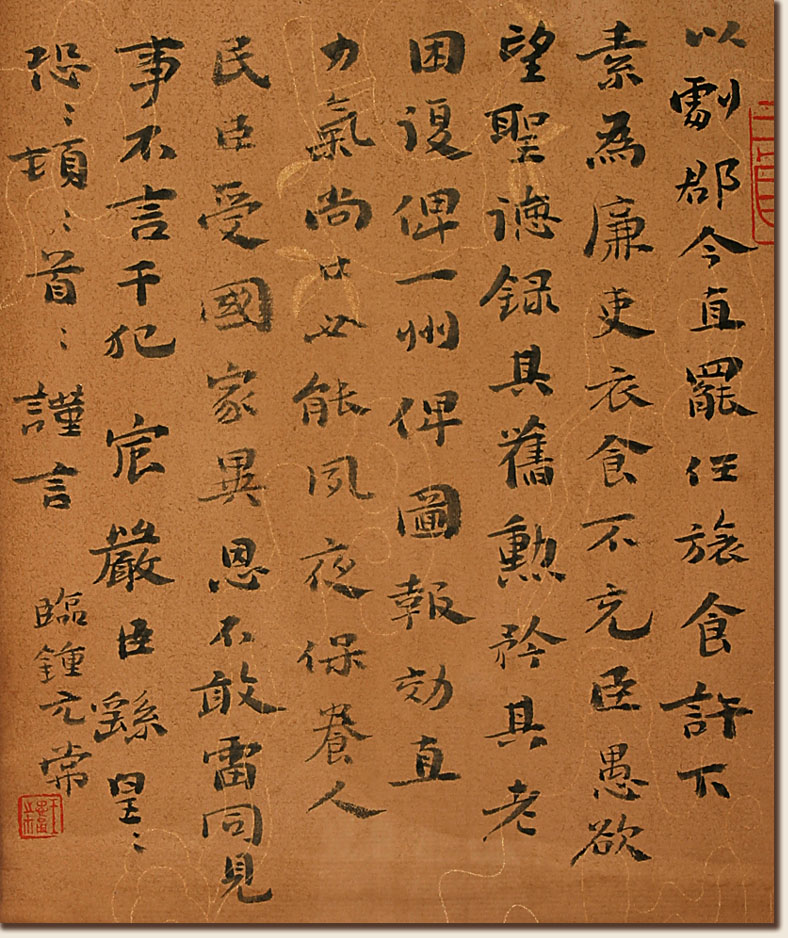 以劇郡今直罷任旅食許下
素為廉吏衣食不充臣愚欲
望聖德録其舊勲矜其老
困復俾一州俾圖報効直
力氣尚壮必能夙夜保養人
民臣受國家異恩不敢雷同見
事不言干犯宸嚴臣繇皇〻
恐〻頓〻首〻謹言
臨鍾元常